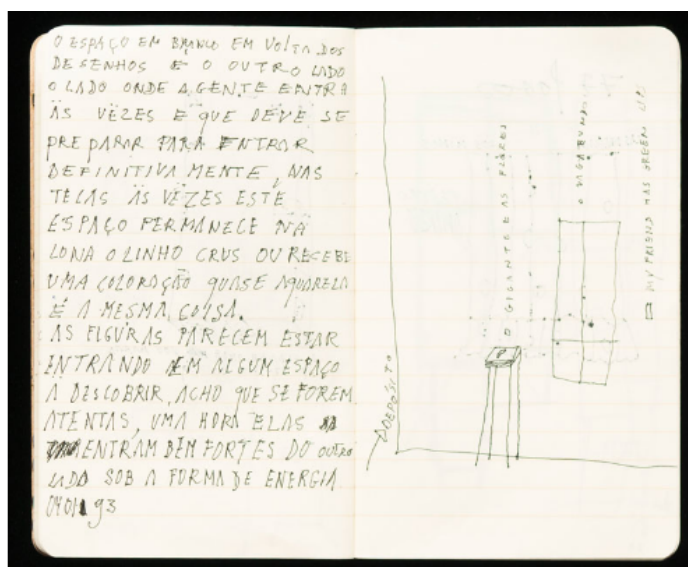 O ESPAÇO EM BRANCO EM VOLTA DOS
DESENHOS E O OUTRO LADO
O LADO ONDE A GENTE ENTRA
ÀS VEZES E QUE DEVE SE
PREPARAR PARA ENTRAR
DEFINITIVAMENTE, NAS
TELAS ÀS VEZES ESTE
ESPAÇO PERMANECE NA
LONA O LINHO CRUS OU RECEBE
UMA COLORAÇÃO QUASE AQUARELA
É A MESMA COISA.
AS FIGURAS PARECEM ESTAR
ENTRANDO EM ALGUM ESPAÇO
A DESCOBRIR, ACHO QUE SE FOREM
ATENTAS, UMA HORA ELAS
ENTRAM BEM FORTES DO OUTRO
LADO SOB A FORMA DE ENERGIA
93
DEPÓSITO
O GIGANTE E AS FLORES
O VAGABUNDO
MY FRIEND HAS GREEN